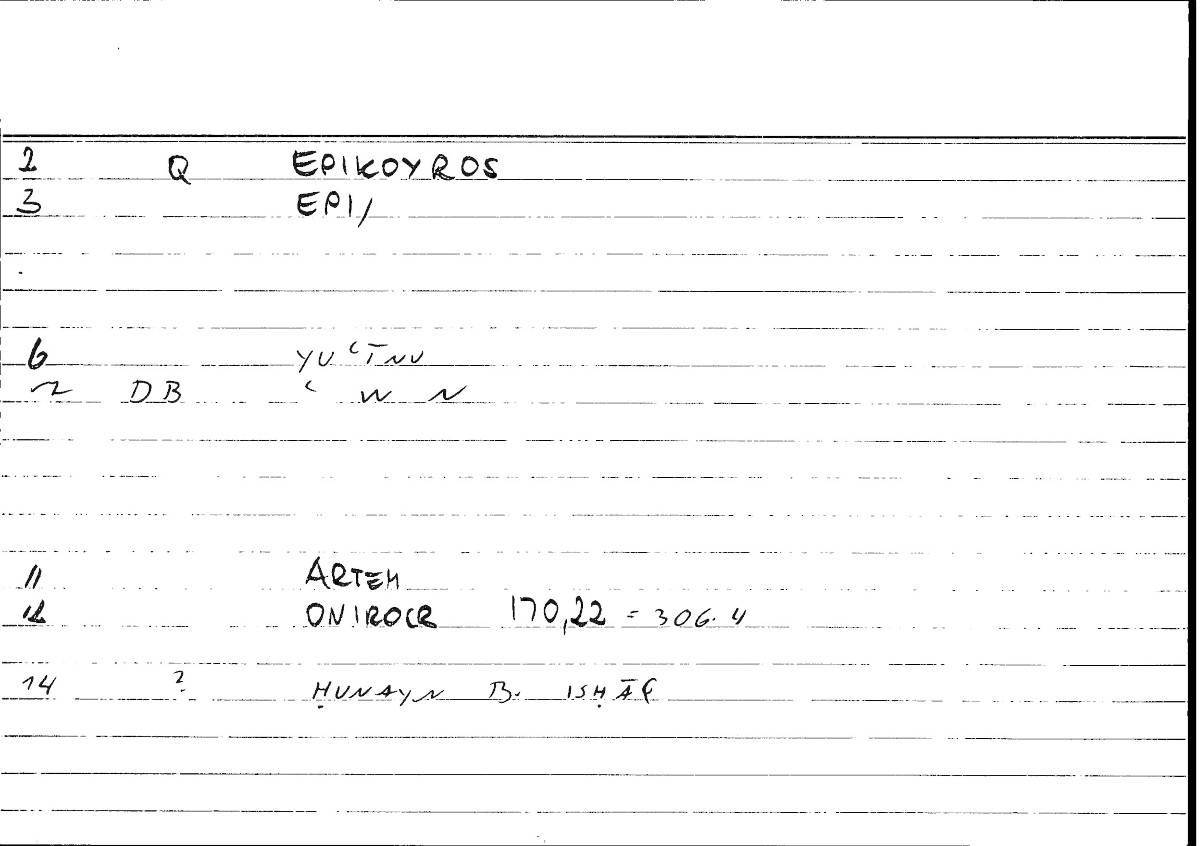 2 Q EPIKOYROS
3 EPI/
6 YU ʿĪNU
7 DB ʿ W N
11 ARTEM
12 ONIROCR 170,22 = 306.4
14 ? ḤUNAYN B. ISḤĀQ